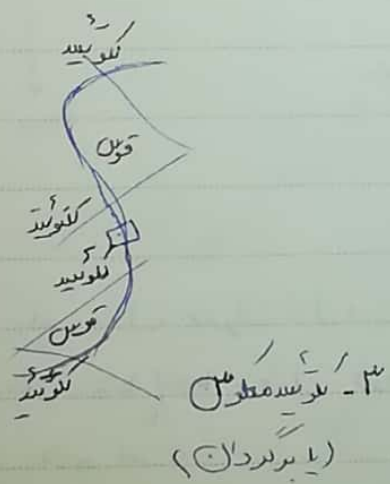 کلوتئید
قوس
کلوتئید
کلوتئید
قوس
کلوتئید
۳- کلوتئید معکوس
(یا برگردان)